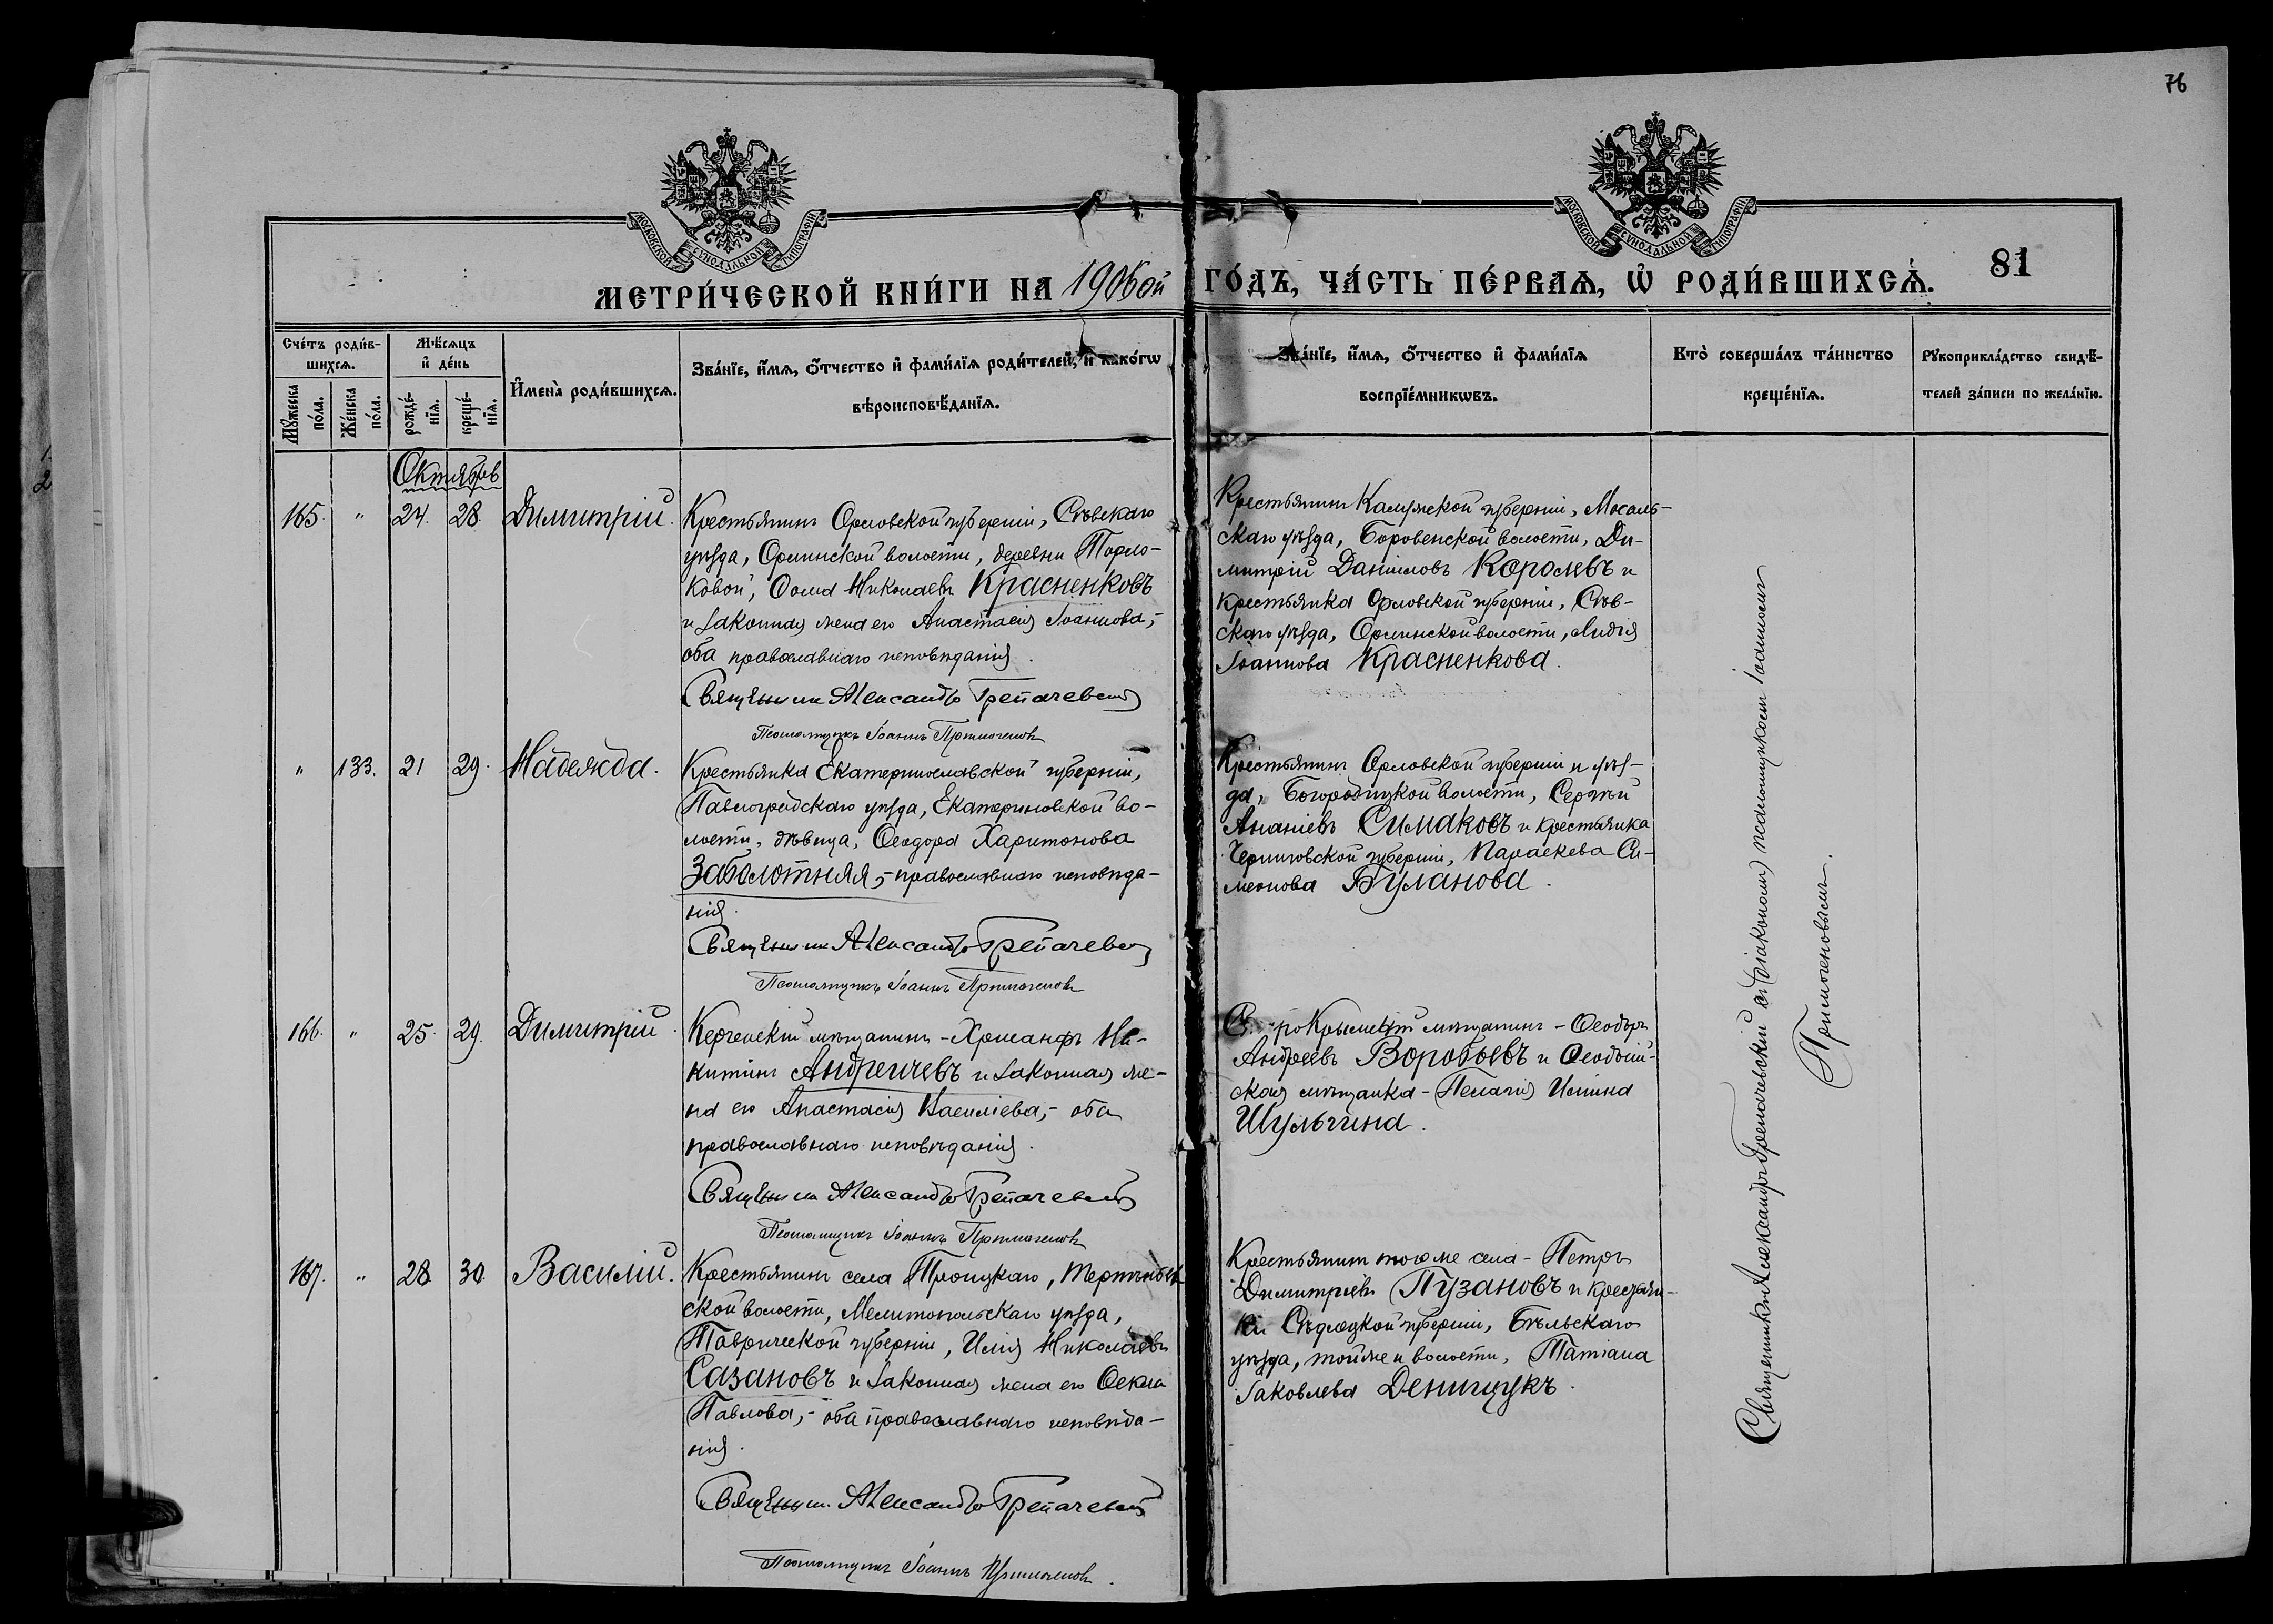 76
МОСКОВСКОЙ СѴНОДАЛЬНОЙ ТИПОГРАФІИ
МОСКОВСКОЙ СѴНОДАЛЬНОЙ ТИПОГРАФІИ
МЕТРИ́ЧЕСКОЙ КНИ́ГИ НА 1906ой ГО́ДЪ, ЧА́СТЬ ПЕ́РВАЯ, Ѡ҆ РОДИ́ВШИХСѦ. 81
Сче́тъ роди́в-
шихсѧ.
Мꙋ́жеска
по́ла.
Же́нска
по́ла.
Мѣ́сѧцъ
и҆ де́нь
рожде́-
нїѧ.
креще́-
нїѧ.
И҆мена̀ роди́вшихсѧ.
Зва́нїе, и҆́мѧ, ѻ҆́тчество и҆ фами́лїѧ роди́телей, и҆ како́гѡ
вѣроисповѣ́данїѧ.
Зва́нїе, и҆́мѧ, ѻ҆́тчество и҆ фами́лїѧ
воспрїе́мникѡвъ.
Кто̀ соверша́лъ та́инство
креще́нїѧ.
Рꙋкоприкла́дство свидѣ́-
телей за́писи по жела́нїю.
Октябрь
165. " 24. 28. Димитрій.
Крестьянинъ Орловской губерніи, Сѣвскаго
уѣзда, Орлинской волости, деревни Торло-
ковой, Ѳома Николаевъ Красненковъ
и законная жена его Анастасія Іоаннова,-
оба православнаго исповѣданія.
Священник Александръ Грепачевскій
Псаломщикъ Іоаннъ Примоченовъ
Крестьянинъ Калужской губерніи, Мосаль-
скаго уѣзда, Боровенской волости, Ди-
митрій Данииловъ Королевъ и
крестьянка Орловской губерніи, Сѣв-
скаго уѣзда, Орлинской волости, Лидія
Іоаннова Красненкова.
" 133. 21 29. Надежда.
Крестьянка Екатеринославской губерніи,
Павлоградскаго уѣзда, Екатериновской во-
лости, дѣвица, Ѳеодора Харитонова
Заболотняя,- православнаго исповѣда-
нія.
Священник Александръ Грепачевскій
Псаломщикъ Іоаннъ Примоченовъ
Крестьянинъ Орловской губерніи и уѣз-
да, Богородицкой волости, Сергѣй
Ананіевъ Симаковъ и крестьянка
Черниговской губерніи, Параскева Си-
меонова Буланова.
166. " 25. 29. Димитрій.
Керченскій мѣщанинъ - Хрисанфъ Ни-
китинъ Андреичевъ и законная же-
на его Анастасія Василіева,- оба
православнаго исповѣданія.
Священник Александръ Грепачевскій
Псаломщикъ Іоаннъ Примоченовъ
Старокрымскій мѣщанинъ - Ѳеодоръ
Андреевъ Воробьевъ и Ѳеодосій-
ская мѣщанка - Пелагія Ильина
Шульгина.
167. " 28. 30. Василій.
Крестьянинъ села Троицкаго,
ской волости, Мелитопольскаго уѣзда,
Таврической губерніи, Илія Николаевъ
Сазановъ и законная жена его Ѳекла
Павлова,- оба православнаго исповѣда-
нія.
Священник Александръ Грепачевскій
Псаломщикъ Іоаннъ Примоченовъ.
Крестьянинъ того же села - Петръ
Димитріевъ Пузановъ и крестьян-
ка Сѣдлецкой губерніи, Бѣльскаго
уѣзда, той же и волости, Татіана
Іаковлева Денищукъ.
Священникъ Александръ Грепачевскій съ (діакономъ) псаломщикомъ Іоанномъ
Примоченовымъ.